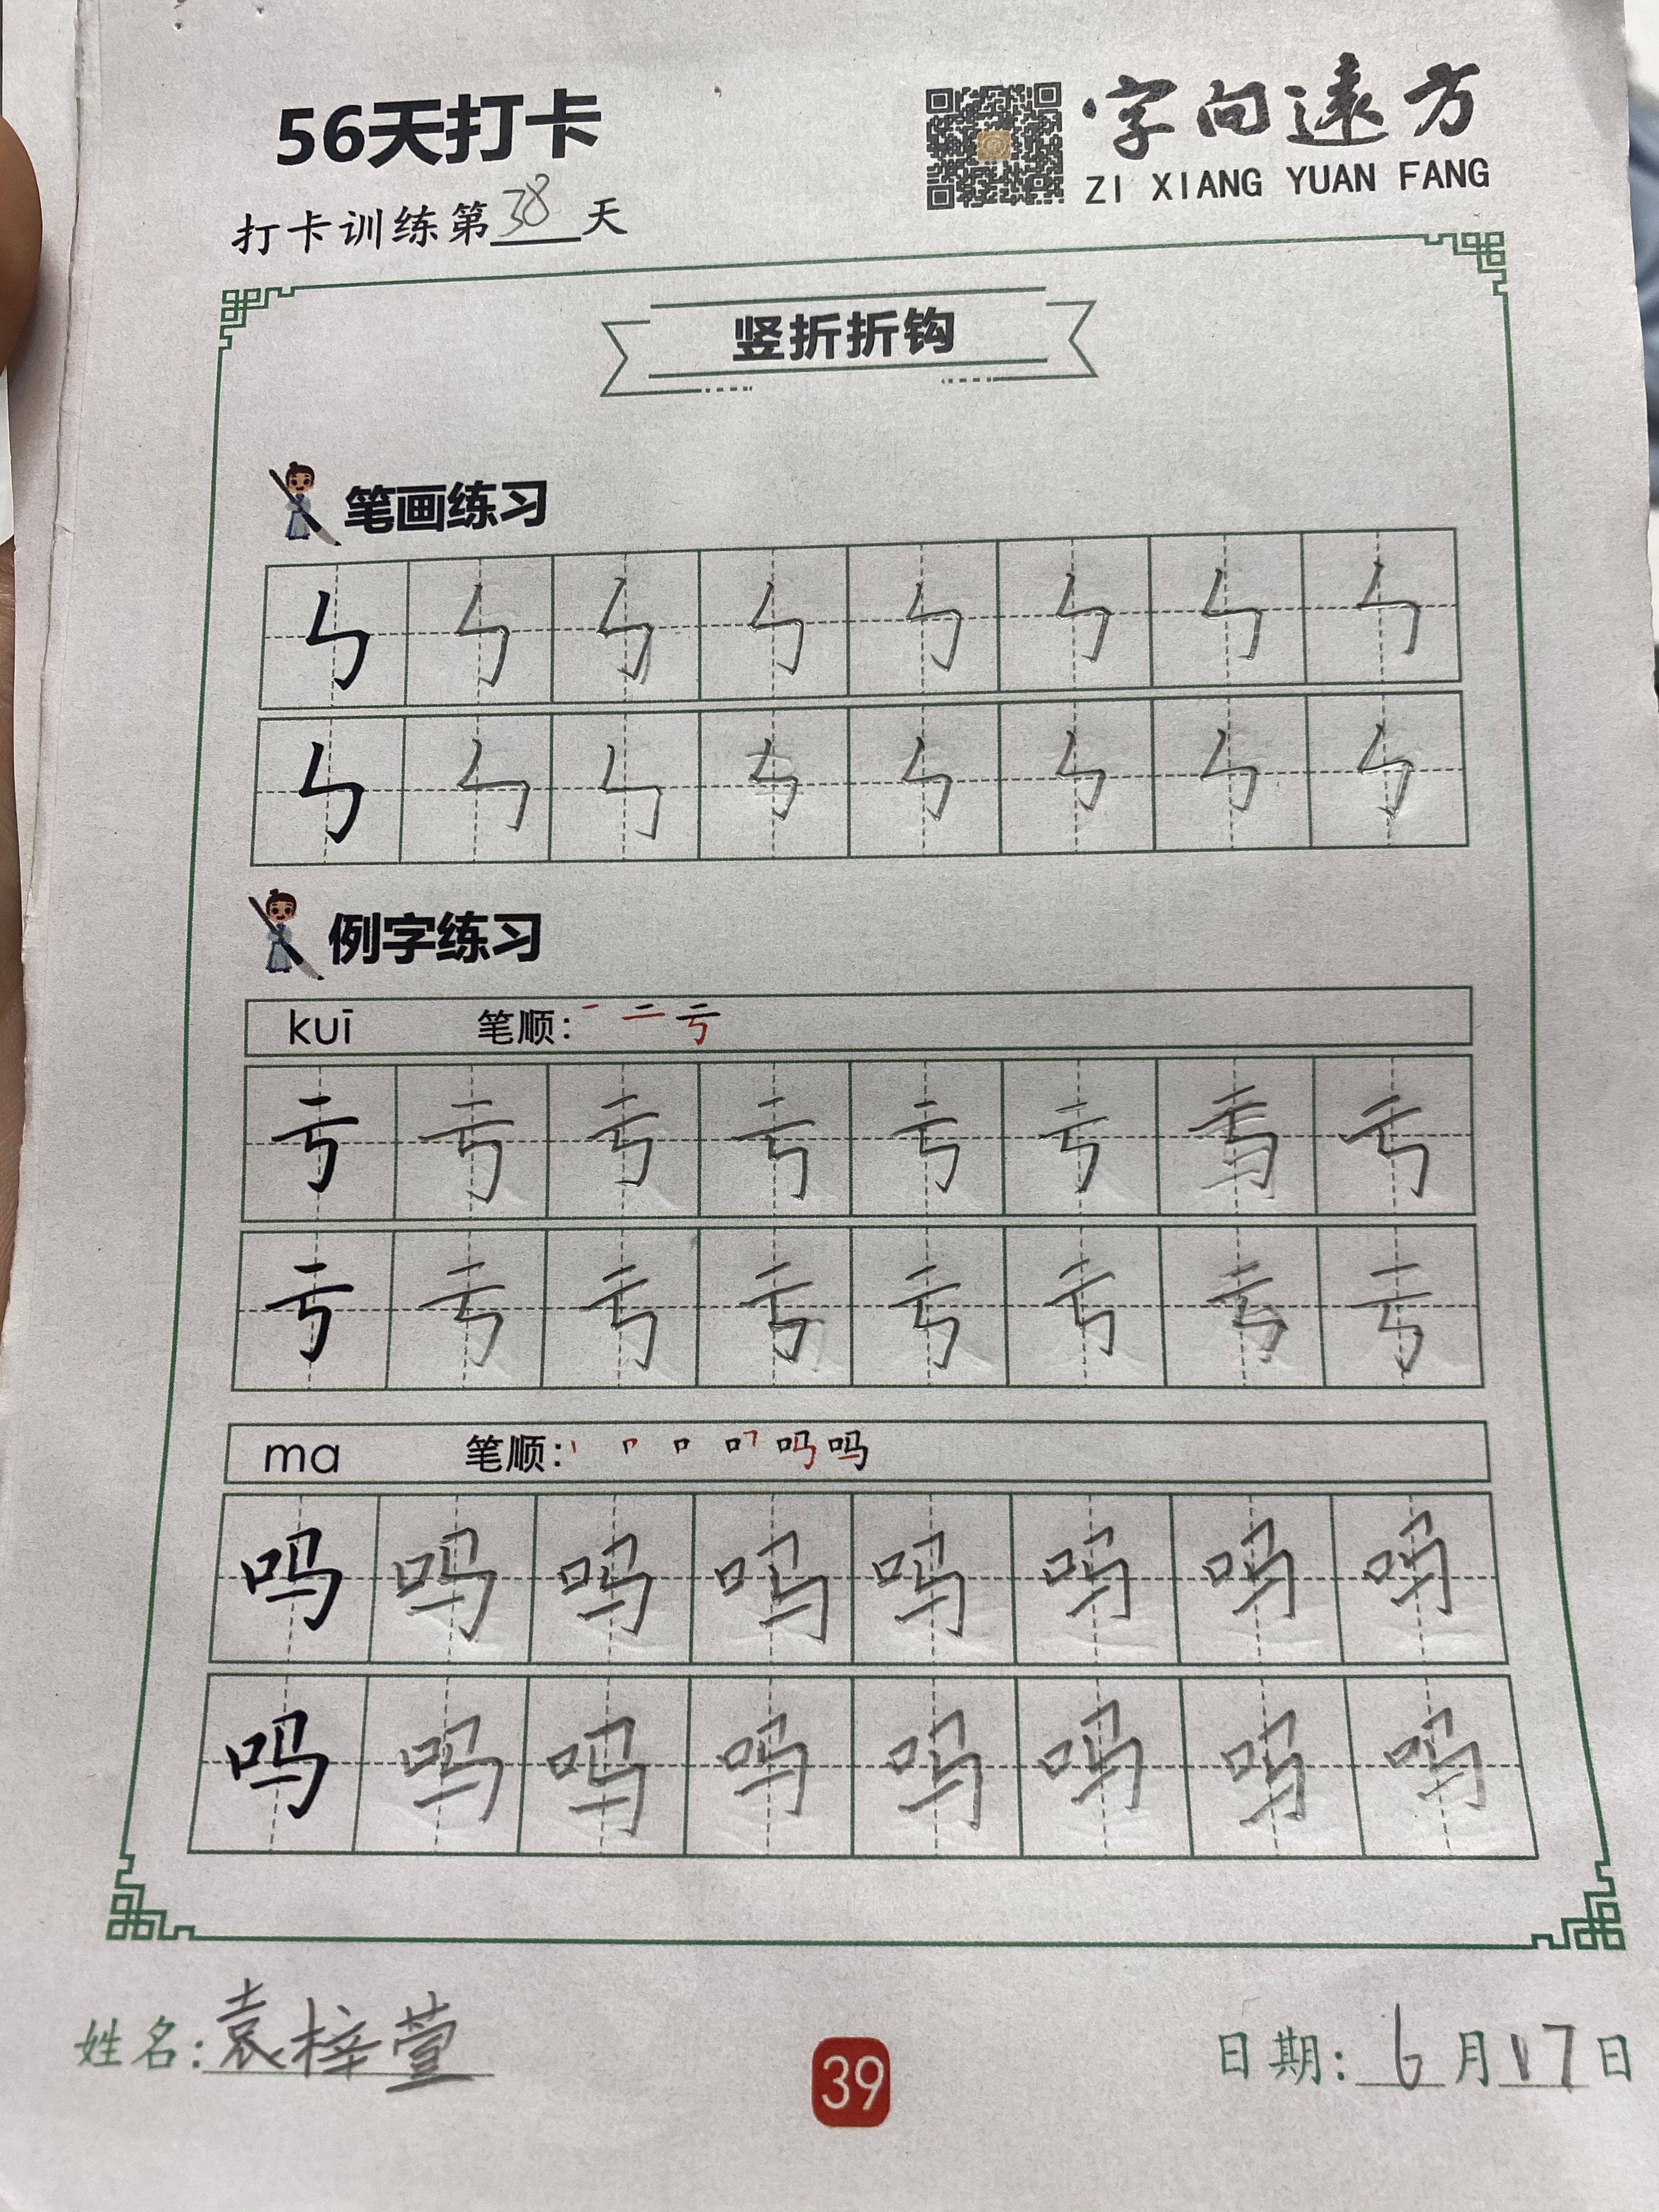 56天打卡
字向遠方
ZI XIANG YUAN FANG
打卡训练第38天
竖折折钩
笔画练习
ㄣ ㄣ ㄣ ㄣ ㄣ ㄣ ㄣ ㄣ
ㄣ ㄣ ㄣ ㄣ ㄣ ㄣ ㄣ ㄣ
例字练习
kuī 笔顺: 一 二 亏
亏 亏 亏 亏 亏 亏 亏 亏
亏 亏 亏 亏 亏 亏 亏 亏
ma 笔顺: 丨 口 吗 吗
吗 吗 吗 吗 吗 吗 吗 吗
吗 吗 吗 吗 吗 吗 吗 吗
姓名:袁梓萱
39
日期: 6月17日